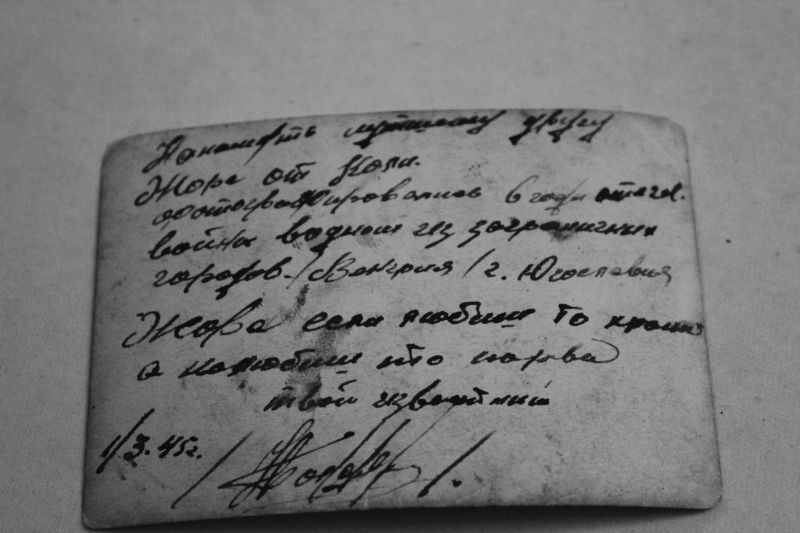 На память лутшему другу
Жоре от Коли.
фотографировались в годы отечев.
война водном из заграничних
городов. /Венгрия/ г. Югославия
Жора если любиш то храни
а нелюбиш то порви
твой известний
1/3.45г.